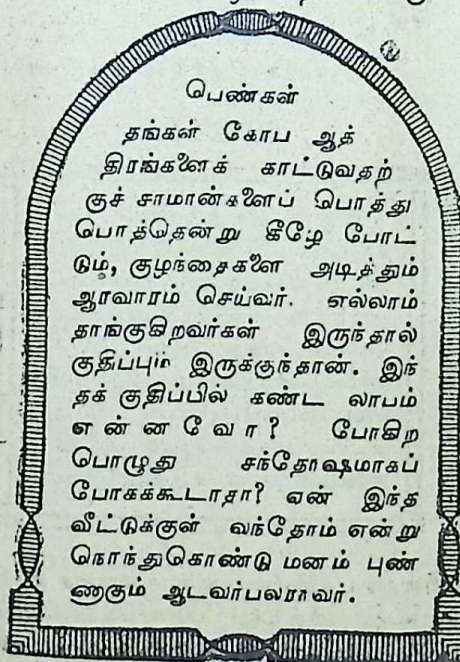 பெண்கள்
தங்கள் கோப ஆத்
திரங்களைக் காட்டுவதற்
குச் சாமான்களைப் பொத்து
பொத்தென்று கீழே போட்
டும், குழந்தைகளை அடித்தும்
ஆரவாரம் செய்வர். எல்லாம்
தாங்குகிறவர்கள் இருந்தால்
குதிப்பும் இருக்குந்தான். இந்
தக் குதிப்பில் கண்ட லாபம்
என்னவோ? போகிற
பொழுது சந்தோஷமாகப்
போகக்கூடாதா? ஏன் இந்த
வீட்டுக்குள் வந்தோம் என்று
நொந்துகொண்டு மனம் புண்
ணாகும் ஆடவர்பலராவர்.